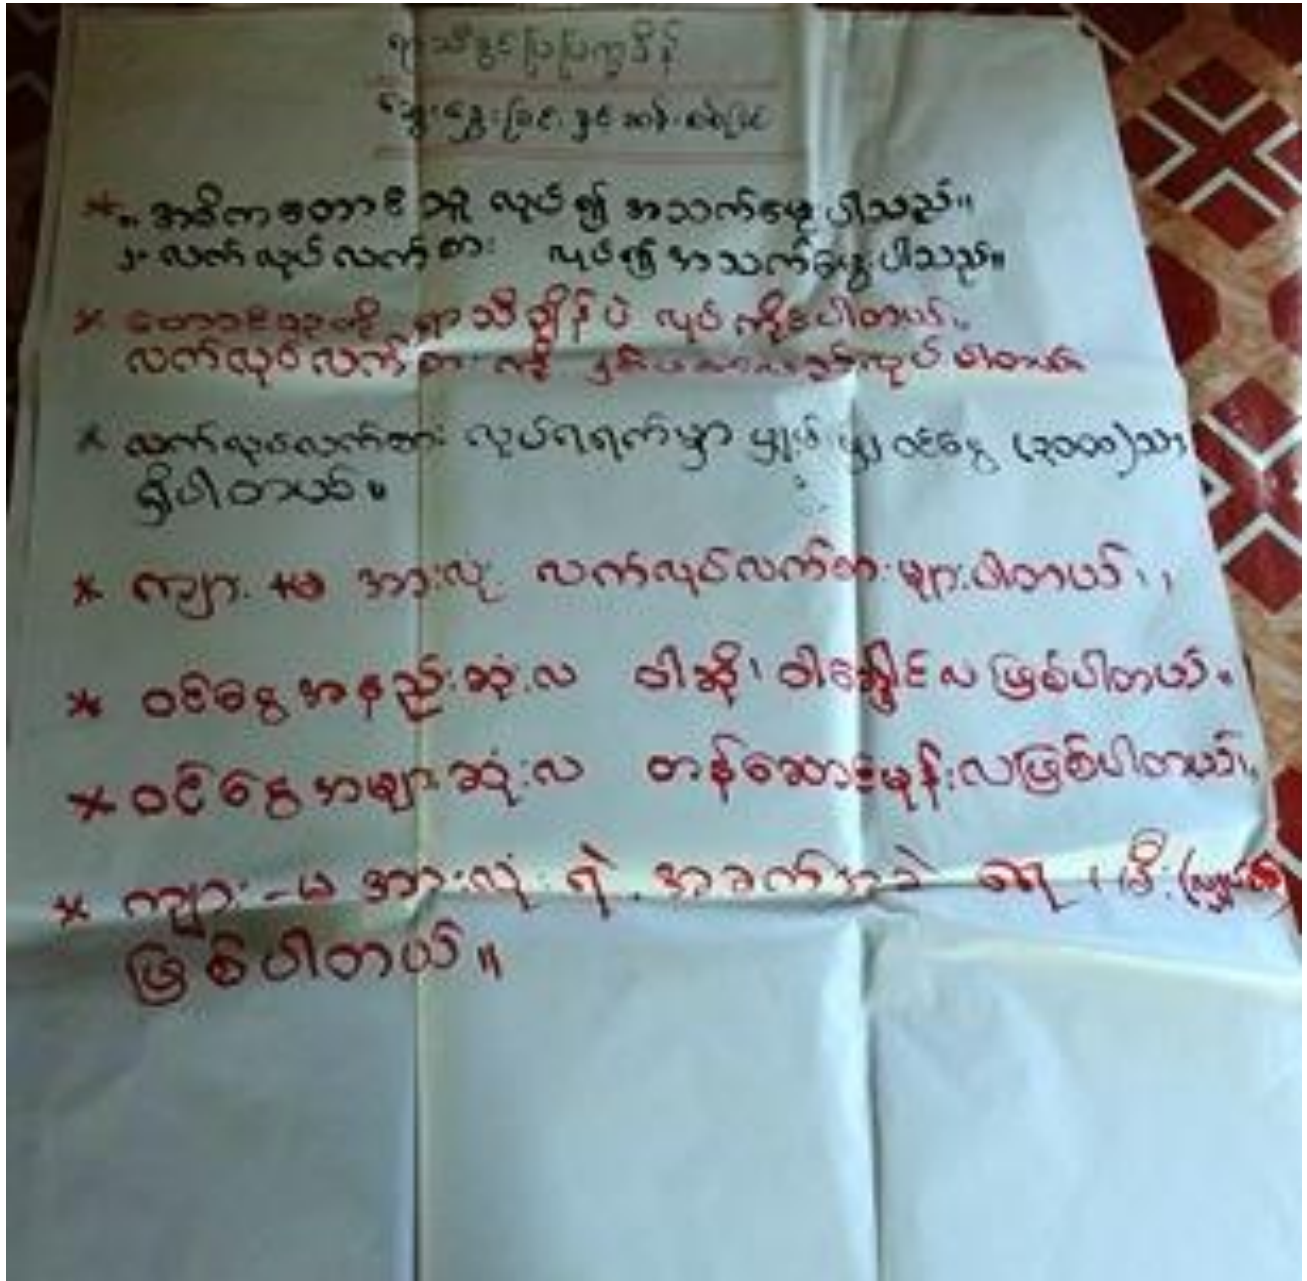 ရာသီခွင်ပြပြက္ခဒိန်
ဆွေးနွေးခြင်း နှင့် ဆန်းစစ်ခြင်း
* ၁. အဓိက တောင်သူ လုပ်၍ အသက်မွေးပါသည်။
၂. လက်လုပ်လက်စား လုပ်၍ အသက်မွေးပါသည်။
* တောင်သူကို ရာသီချိန်ပဲ လုပ်ကိုင်ပါတယ်။
လက်လုပ်လက်စား ကို လုပ်ပါတယ်။
* လက်လုပ်လက်စား လုပ်ရရက်မှာ ပျှမ်းမျှ ဝင်ငွေ (၃၀၀၀)သာ
ရှိပါတယ်။
* ကျား+မ အားလုံး လက်လုပ်လက်စားများပါတယ်။
* ဝင်ငွေအနည်းဆုံးလ ဝါဆို၊ ဝါခေါင်လ ဖြစ်ပါတယ်။
* ဝင်ငွေအများဆုံးလ တန်ဆောင်မုန်းလဖြစ်ပါတယ်။
* ကျား-မ အားလုံးရဲ့ အခက်အခဲ ရေ၊ မီး(လျှပ်စစ်)
ဖြစ်ပါတယ်။